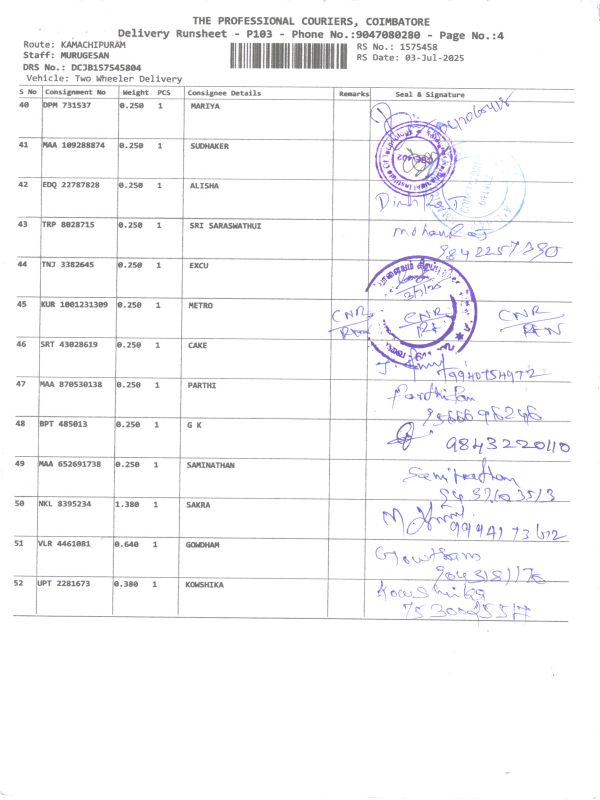 THE PROFESSIONAL COURIERS, COIMBATORE
Delivery Runsheet - P103 - Phone No.:9047080280 - Page No.:4
Route: KAMACHIPURAM
RS No.: 1575458
Staff: MURUGESAN
RS Date: 03-Jul-2025
DRS No.: DCJB157545804
Vehicle: Two Wheeler Delivery
S No Consignment No Weight PCS Consignee Details Remarks Seal & Signature
40 DPM 731537 0.250 1 MARIYA
41 MAA 109288874 0.250 1 SUDHAKER
42 EDQ 22787828 0.250 1 ALISHA
43 TRP 8028715 0.250 1 SRI SARASWATHUI
44 TNJ 3382645 0.250 1 EXCU
45 KUR 1001231309 0.250 1 METRO CNR CNR CNR
46 SRT 43028619 0.250 1 CAKE
9940754972
47 MAA 870530138 0.250 1 PARTHI
48 BPT 485013 0.250 1 G K
9843220110
49 MAA 652691738 0.250 1 SAMINATHAN
50 NKL 8395234 1.380 1 SAKRA
51 VLR 4461081 0.640 1 GOWDHAM
52 UPT 2281673 0.380 1 KOWSHIKA
Kowshika